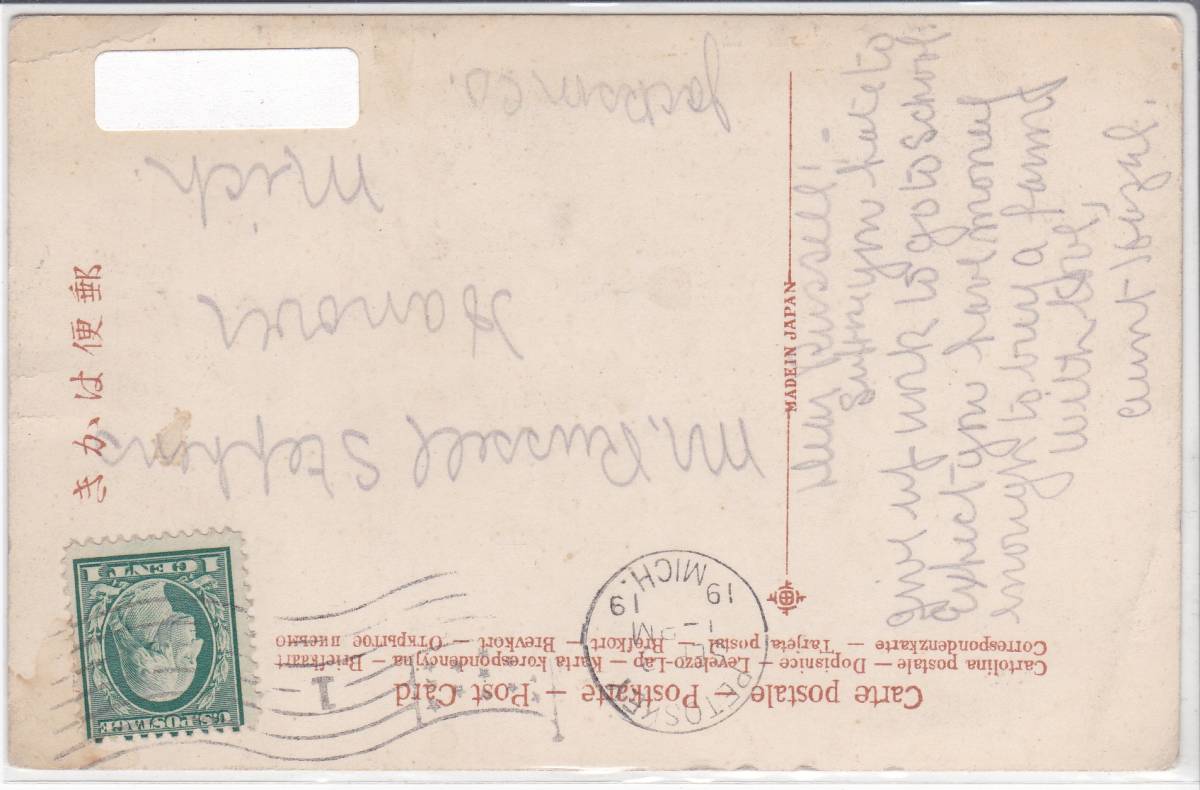 Carte postale — Postkarte — Post Card
Cartolina postale — Dopisnice — Levelezo-Lap — Karta korespondencyjna — Briefkaart
Correspondenzkarte — Tarjeta postal — Brefkort — Brevkort — Открытое письмо
郵便はかき
MADE IN JAPAN
U.S. POSTAGE
1 CENT 1
PETOSKEY
19 19
MICH.
1
Dear Russell:-
Suppose you hate to
give up work to go to school.
Expect you have money
enough to buy a farm
with love,
Aunt Hazel.
Mr. Russell Stephens
Hanover
Mich.
Jackson Co.